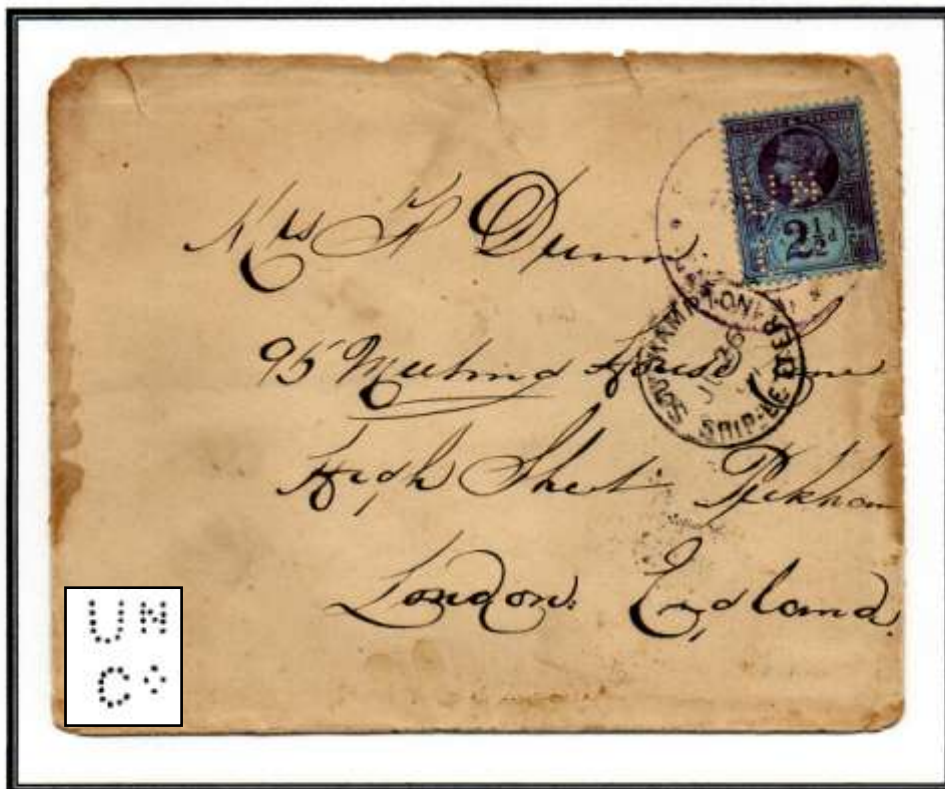 POSTAGE & REVENUE
2½d
SOUTHAMPTON
SHIP-LETTER
26
Mrs F Dunn
95 Meeting House Lane
High Street Peckham
London. England.
UN
Co